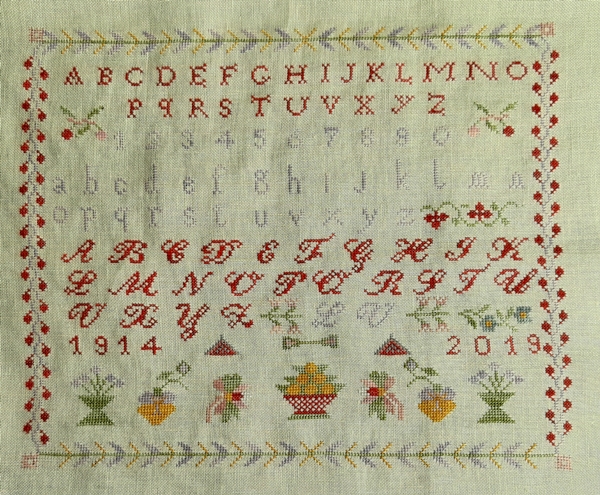 A B C D E F G H I J K L M N O
P q R S T U V X Y Z
1 2 3 4 5 6 7 8 9 0
a b c d e f g h i j k l m n
o p q r s t u v x y z
A B C D E F G H I K
L M N O P Q R S T U
V X Y Z L V
1914 2019